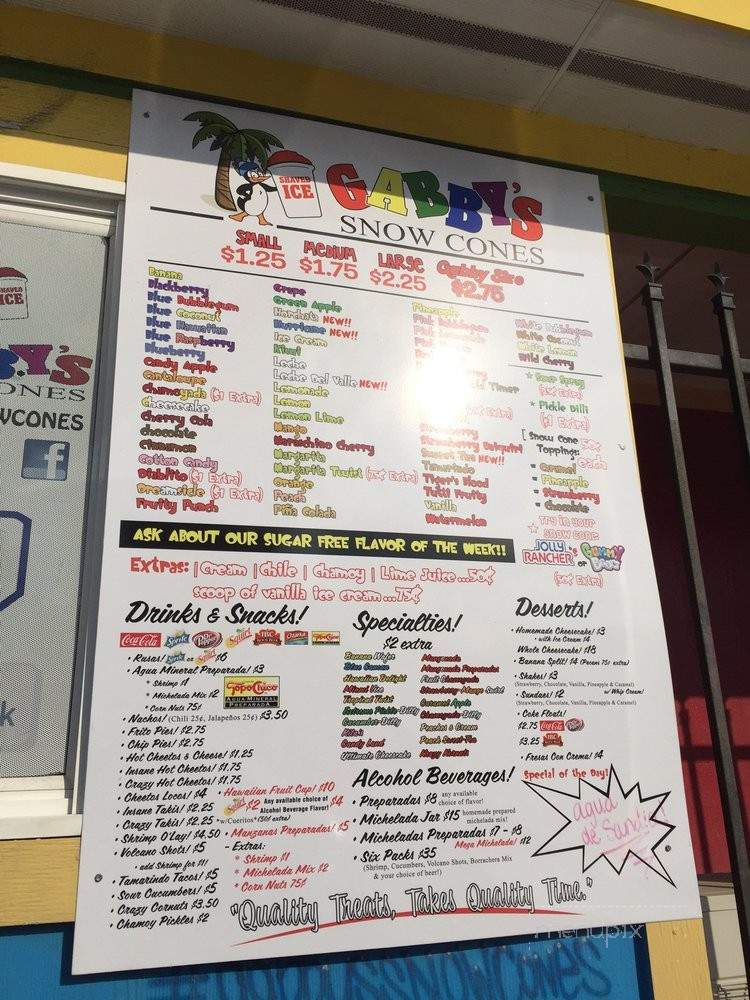 SHAVED
ICE
GABBY'S
SNOW CONES
SMALL MEDIUM LARGE Gabby Size
$1.25 $1.75 $2.25 $2.75
Banana
Blackberry
Blue Bubblegum
Blue Coconut
Blue Hawaiian
Blue Raspberry
Blueberry
Candy Apple
Cantaloupe
Chamoyada ($1 Extra)
Cheesecake
Cherry Cola
chocolate
Cinnamon
Cotton Candy
Diablito ($1 Extra)
Dreamsicle ($1 Extra)
Fruity Punch
Grape
Green Apple
Horchata NEW!!
Hurricane NEW!!
Ice Cream
Kiwi
Leche
Leche Del Valle NEW!!
Lemonade
Lemon
Lemon Lime
Mango
Maraschino Cherry
Margarita
Margarita Twist (75¢ Extra)
Orange
Peach
Piña Colada
Pineapple
Pink Bubblegum
Timer
Extra)
Strawberry
Strawberry Daiquiri
Sweet Tea NEW!!
Tamarindo
Tiger's Blood
Tutti Fruity
Vanilla
Watermelon
White Bubblegum
White Coconut
White Lemon
Wild Cherry
* Sour Spray
Extra)
* Pickle Dilli
($1 Extra)
[Snow Cone
Toppings: 50¢
each
Caramel
Pineapple
Strawberry
Chocolate
* Try in your
snow cone
JOLLY RANCHER's or GUMMY
(50¢ Extra)
ASK ABOUT OUR SUGAR FREE FLAVOR OF THE WEEK!!
Extras: |Cream |Chile | Chamoy | Lime Juice...50¢
scoop of vanilla ice cream...75¢
Drinks & Snacks!
Coca-Cola Sprite Dr Pepper Squirt IBC Ozarka Topo Chico
• Rusas! Sprite or Squirt $6
• Agua Mineral Preparada! $3
* Shrimp $1
* Michelada Mix $2
* Corn Nuts 75¢
Topo Chico
AGUA MINERAL
PREPARADA
• Nachos! (Chili 25¢, Jalapeños 25¢) $3.50
• Frito Pies! $2.75
• Chip Pies! $2.75
• Hot Cheetos & Cheese! $1.25
• Insane Hot Cheetos! $1.75
• Crazy Hot Cheetos! $1.75
• Cheetos Locos! $4
• Insane Takis! $2.25
• Crazy Takis! $2.25
• Shrimp O'Lay! $4.50
• Volcano Shots! $5
• add Shrimp for $1!
• Tamarindo Tacos! $5
• Sour Cucumbers! $5
• Crazy Cornuts $3.50
• Chamoy Pickles $2
• Hawaiian Fruit Cup! $10
$2 Any available choice of Alcohol Beverage Flavor! $4
*w/Cerritos* (50¢ extra)
• Manzanas Preparadas! $5
- Extras:
* Shrimp $1
* Michelada Mix $2
* Corn Nuts 75¢
Specialties!
$2 extra
Banana Wafer
Hawaiian Delight
Miami Vice
Tropical Twist
Extreme Pickle-Dilly
Cucumber-Dilly
Candy Land
Ultimate Cheesecake
Mangonada
Mangonada Preparadas
Fruit Chamoyada
Strawberry-Mango Swirl
Caramel Apple
Chamoyada-Dilly
Peaches & Cream
Peach Sweet-Tea
Alcohol Beverages!
• Preparadas $8 any available choice of flavor!
• Michelada Jar $15 homemade prepared michelada mix!
• Micheladas Preparadas $7 - $8
Mega Michelada! $12
• Six Packs $35
(Shrimp, Cucumbers, Volcano Shots, Borrachera Mix
& your choice of beer!)
Desserts!
• Homemade Cheesecake! $3
• with Ice Cream $4
Whole Cheesecake! $18
• Banana Split! $4 (Pecans 75¢ extra)
• Shakes! $3
(Strawberry, Chocolate, Vanilla, Pineapple & Caramel)
• Sundaes! $2 w/ Whip Cream!
(Strawberry, Chocolate, Vanilla, Pineapple & Caramel)
• Coke Floats!
$2.75 Coca-Cola
$3.25 IBC
• Fresas Con Crema! $4
Special of the Day!
agua
de Sandia
"Quality Treats, Takes Quality Time."
menupix